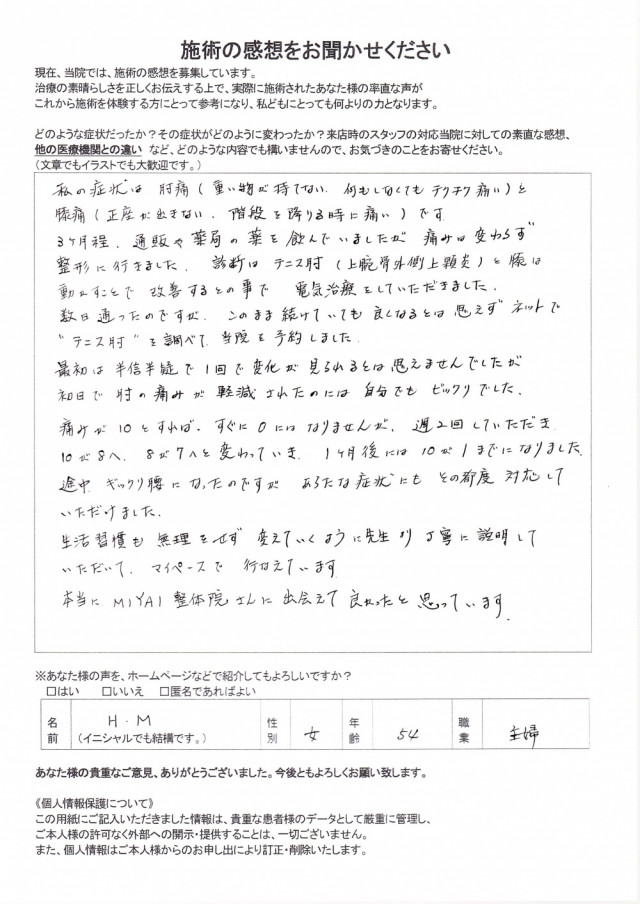 施術の感想をお聞かせください
現在、当院では、施術の感想を募集しています。
治療の素晴らしさを正しくお伝えする上で、実際に施術されたあなた様の率直な声が
これから施術を体験する方にとって参考になり、私どもにとっても何よりの力となります。
どのような症状だったか？その症状がどのように変わったか？来店時のスタッフの対応当院に対しての素直な感想、
他の医療機関との違い など、どのような内容でも構いませんので、お気づきのことをお寄せください。
（文章でもイラストでも大歓迎です。）
私の症状は 肘痛（重い物が持てない 何もしなくても チクチク痛い）と
膝痛（正座が出きない、階段を降りる時に痛い）です
3ヶ月程、通販や薬局の薬を飲んでいましたが 痛みは変わらず
整形に行きました、診断はテニス肘（上腕骨外側上顆炎）と膝は
動かすことで 改善するとの事で 電気治療をしていただきました。
数日通ったのですが、このまま続けていても良くなるとは思えず ネットで
"テニス肘"を調べて、当院を予約しました。
最初は半信半疑で1回で変化が見られるとは思えませんでしたが
初日で肘の痛みが軽減されたのには 自分でも ビックリでした、
痛みが10とすれば、すぐに0にはなりませんが、週2回していただき
10が8へ、8が7へと変わっていき、1ヶ月後には10が1までになりました
途中 ギックリ腰になったのですが あらたな症状にも その都度 対応して
いただけました。
生活習慣も 無理をせず 変えていくように先生より丁寧に説明して
いただいて、マイペースで 行なえています
本当に MIYAI 整体院さんに出会えて 良かったと思っています.
※あなた様の声を、ホームページなどで紹介してもよろしいですか？
□はい □いいえ □匿名であればよい
名前 H.M （イニシャルでも結構です。） 性別 女 年齢 54 職業 主婦
あなた様の貴重なご意見、ありがとうございました。今後ともよろしくお願い致します。
《個人情報保護について》
この用紙にご記入いただきました情報は、貴重な患者様のデータとして厳重に管理し、
ご本人様の許可なく外部への開示・提供することは、一切ございません。
また、個人情報はご本人様からのお申し出により訂正・削除いたします。